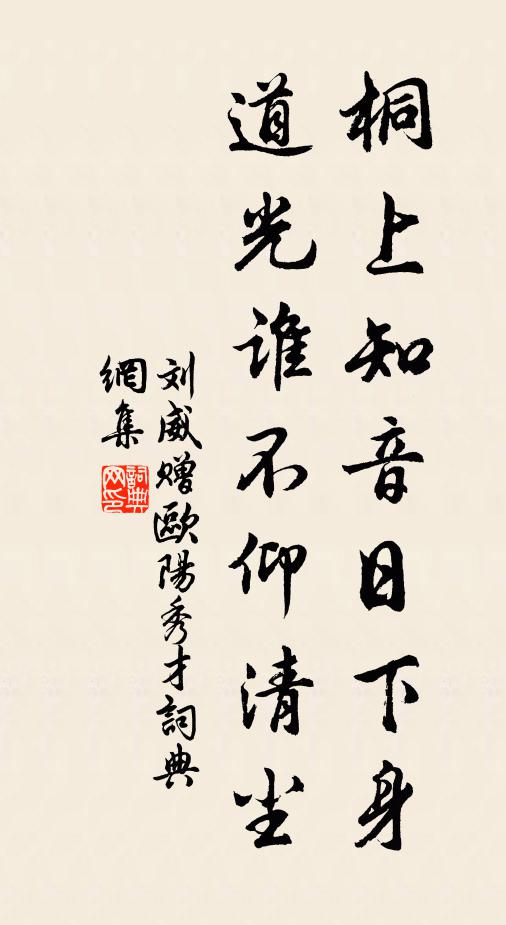 桐上知音日下身
道光谁不仰清尘
刘威赠歐陽秀才詞典
網集
詞典
网印